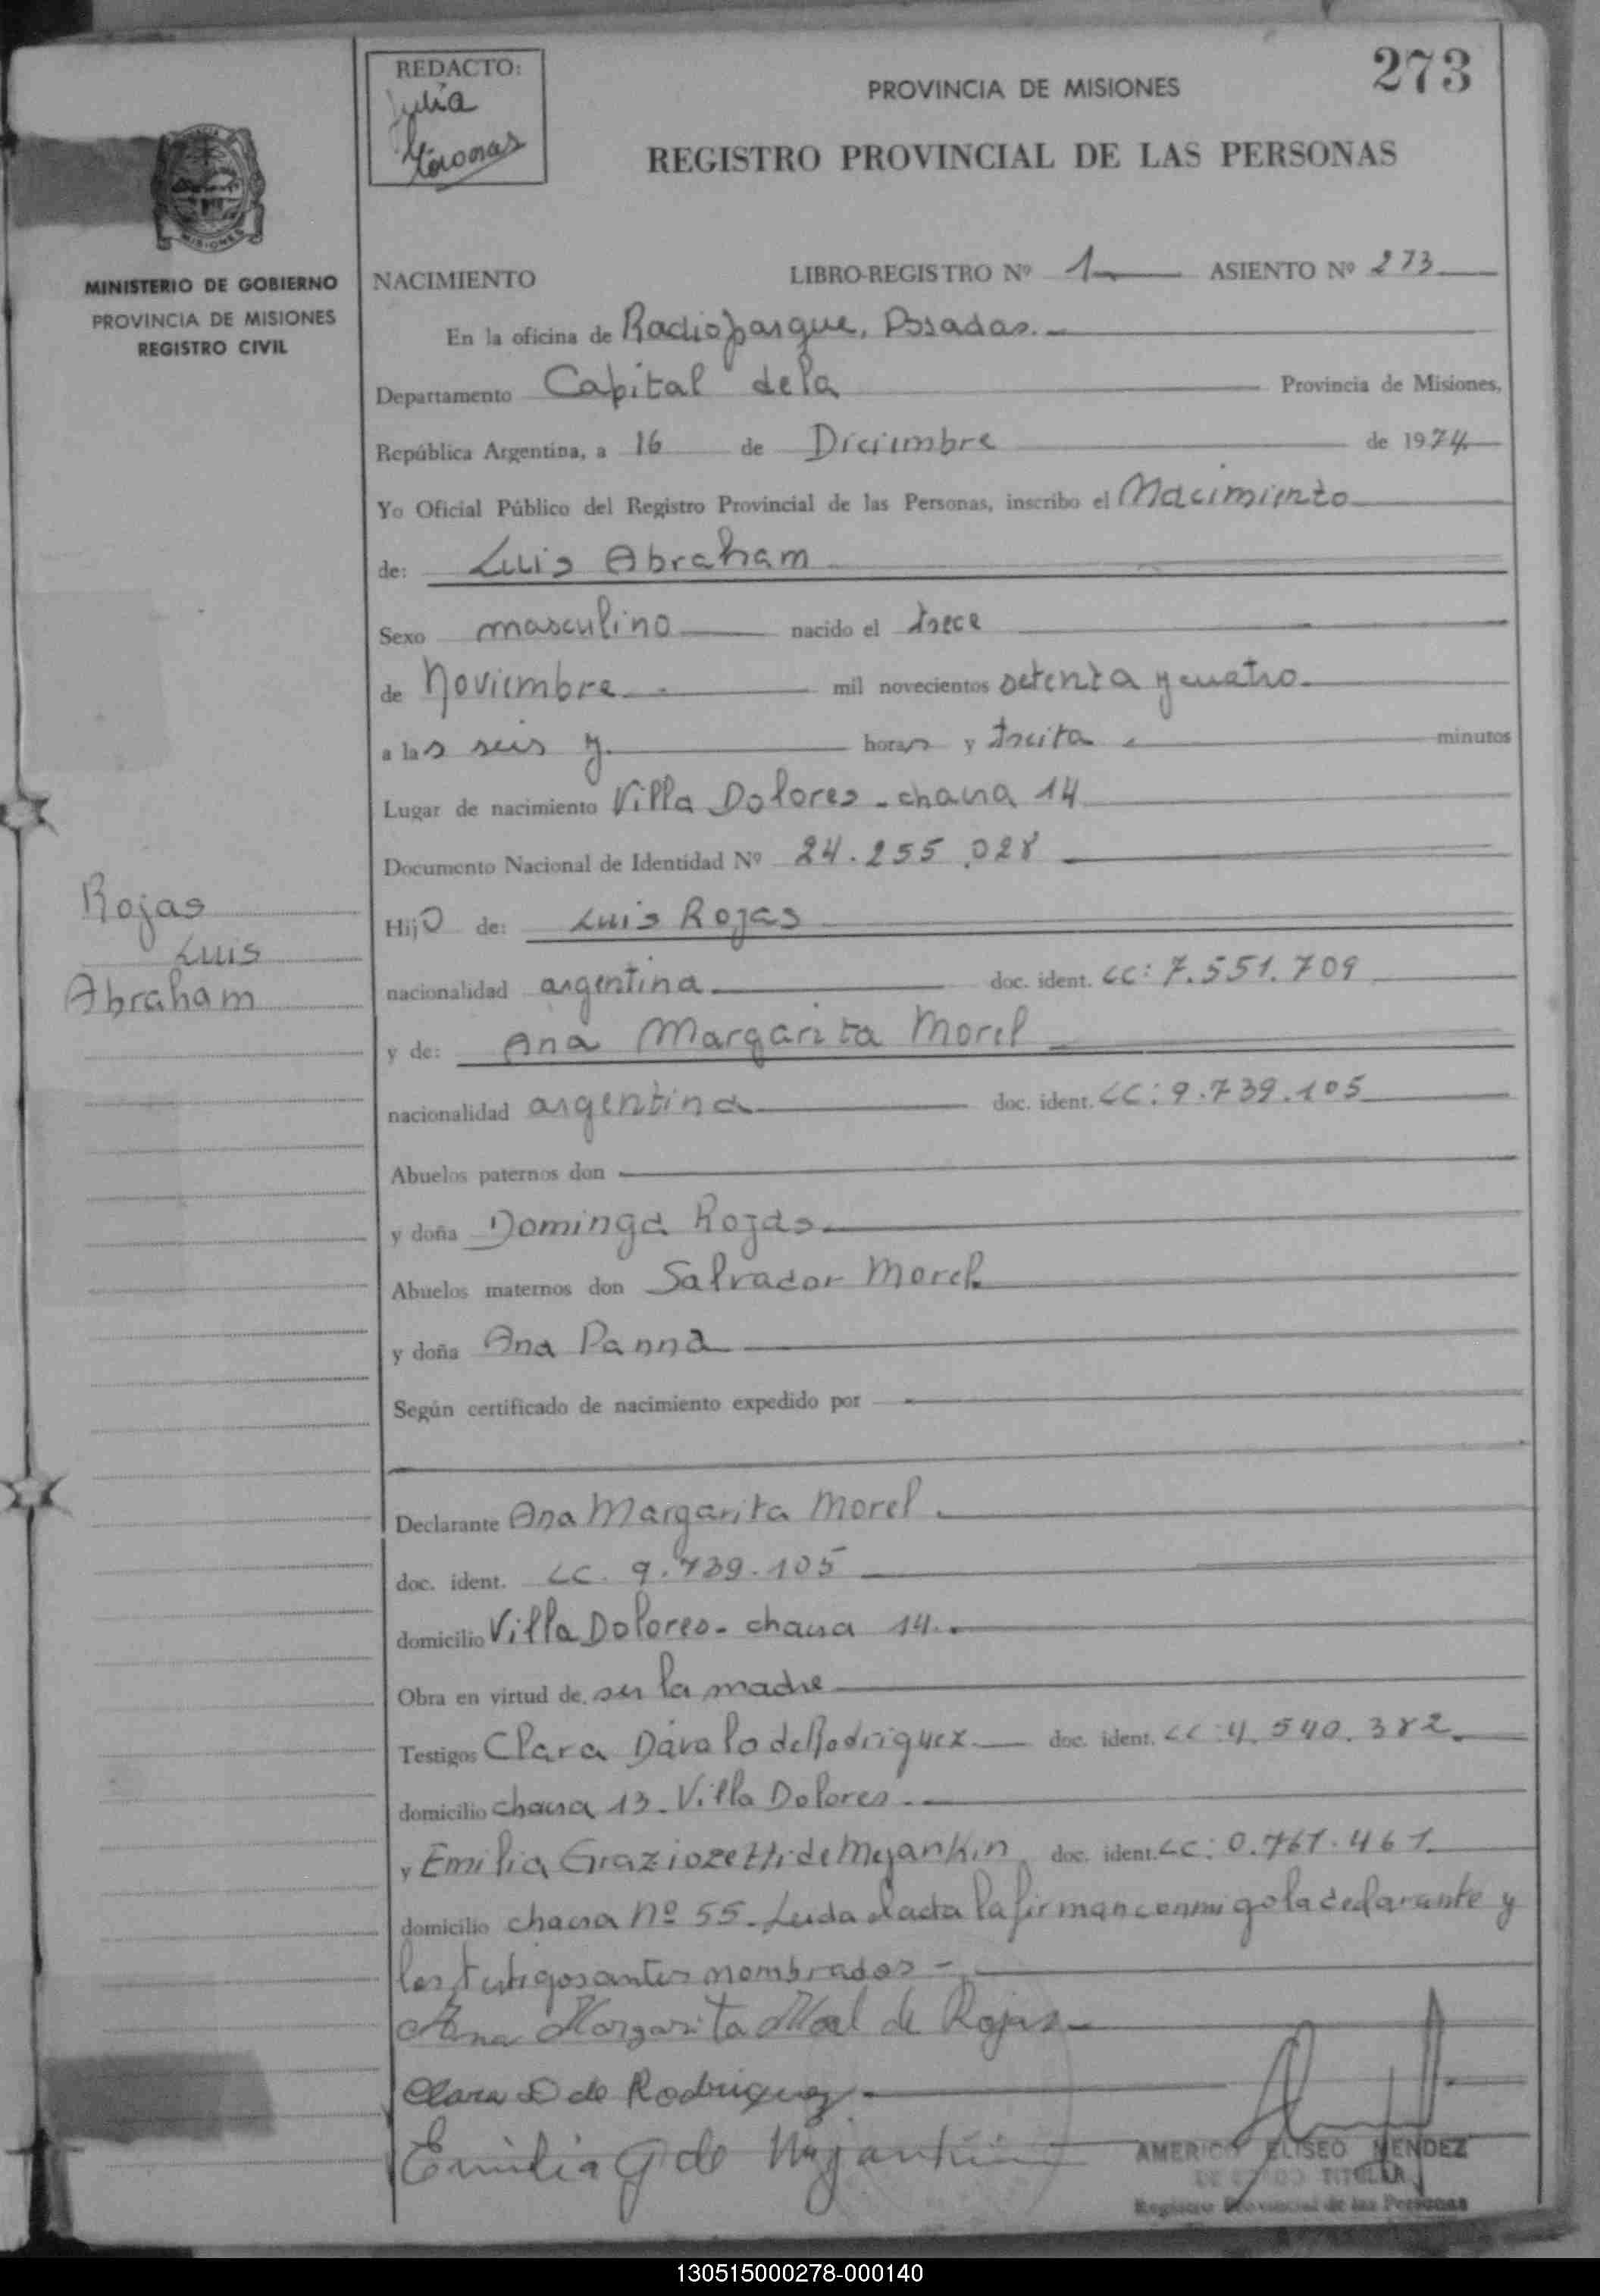 REDACTO:
Julia
273
PROVINCIA DE MISIONES
REGISTRO PROVINCIAL DE LAS PERSONAS
MISIONES
MINISTERIO DE GOBIERNO
PROVINCIA DE MISIONES
REGISTRO CIVIL
NACIMIENTO LIBRO-REGISTRO Nº 1 ASIENTO Nº 273
En la oficina de Radioparque, Posadas.-
Departamento Capital dela Provincia de Misiones,
República Argentina, a 16 de Diciembre de 1974
Yo Oficial Público del Registro Provincial de las Personas, inscribo el Nacimiento
de: Luis Abraham
Sexo masculino nacido el trece
de Noviembre mil novecientos setenta y cuatro
a las seis y horas y treita minutos
Lugar de nacimiento Villa Dolores - chacra 14
Documento Nacional de Identidad Nº 24.255.028
Rojas
Luis
Abraham
Hijo de: Luis Rojas
nacionalidad argentina doc. ident. LC: 7.551.709
y de: Ana Margarita Morel
nacionalidad argentina doc. ident. LC: 9.739.105
Abuelos paternos don
y doña Dominga Rojas
Abuelos maternos don Salvador Morel
y doña Ana Panna
Según certificado de nacimiento expedido por
Declarante Ana Margarita Morel
doc. ident. LC. 9.739.105
domicilio Villa Dolores - chacra 14.
Obra en virtud de ser la madre
Testigos Clara Dávalo de Rodriguez doc. ident. LC: 4.540.382
domicilio chacra 13 - Villa Dolores.
y Emilia Graziozetti de Myankin doc. ident. LC: 0.761.461
domicilio chacra nº 55 - Leida el acta la firman conmigo la declarante y
los testigos antes nombrados -
Ana Margarita Morel de Rojas
Clara D de Rodriguez
Emilia G de Myankin
AMERICO ELISEO MENDEZ
TITULAR
Registro Provincial de las Personas
130515000278-000140